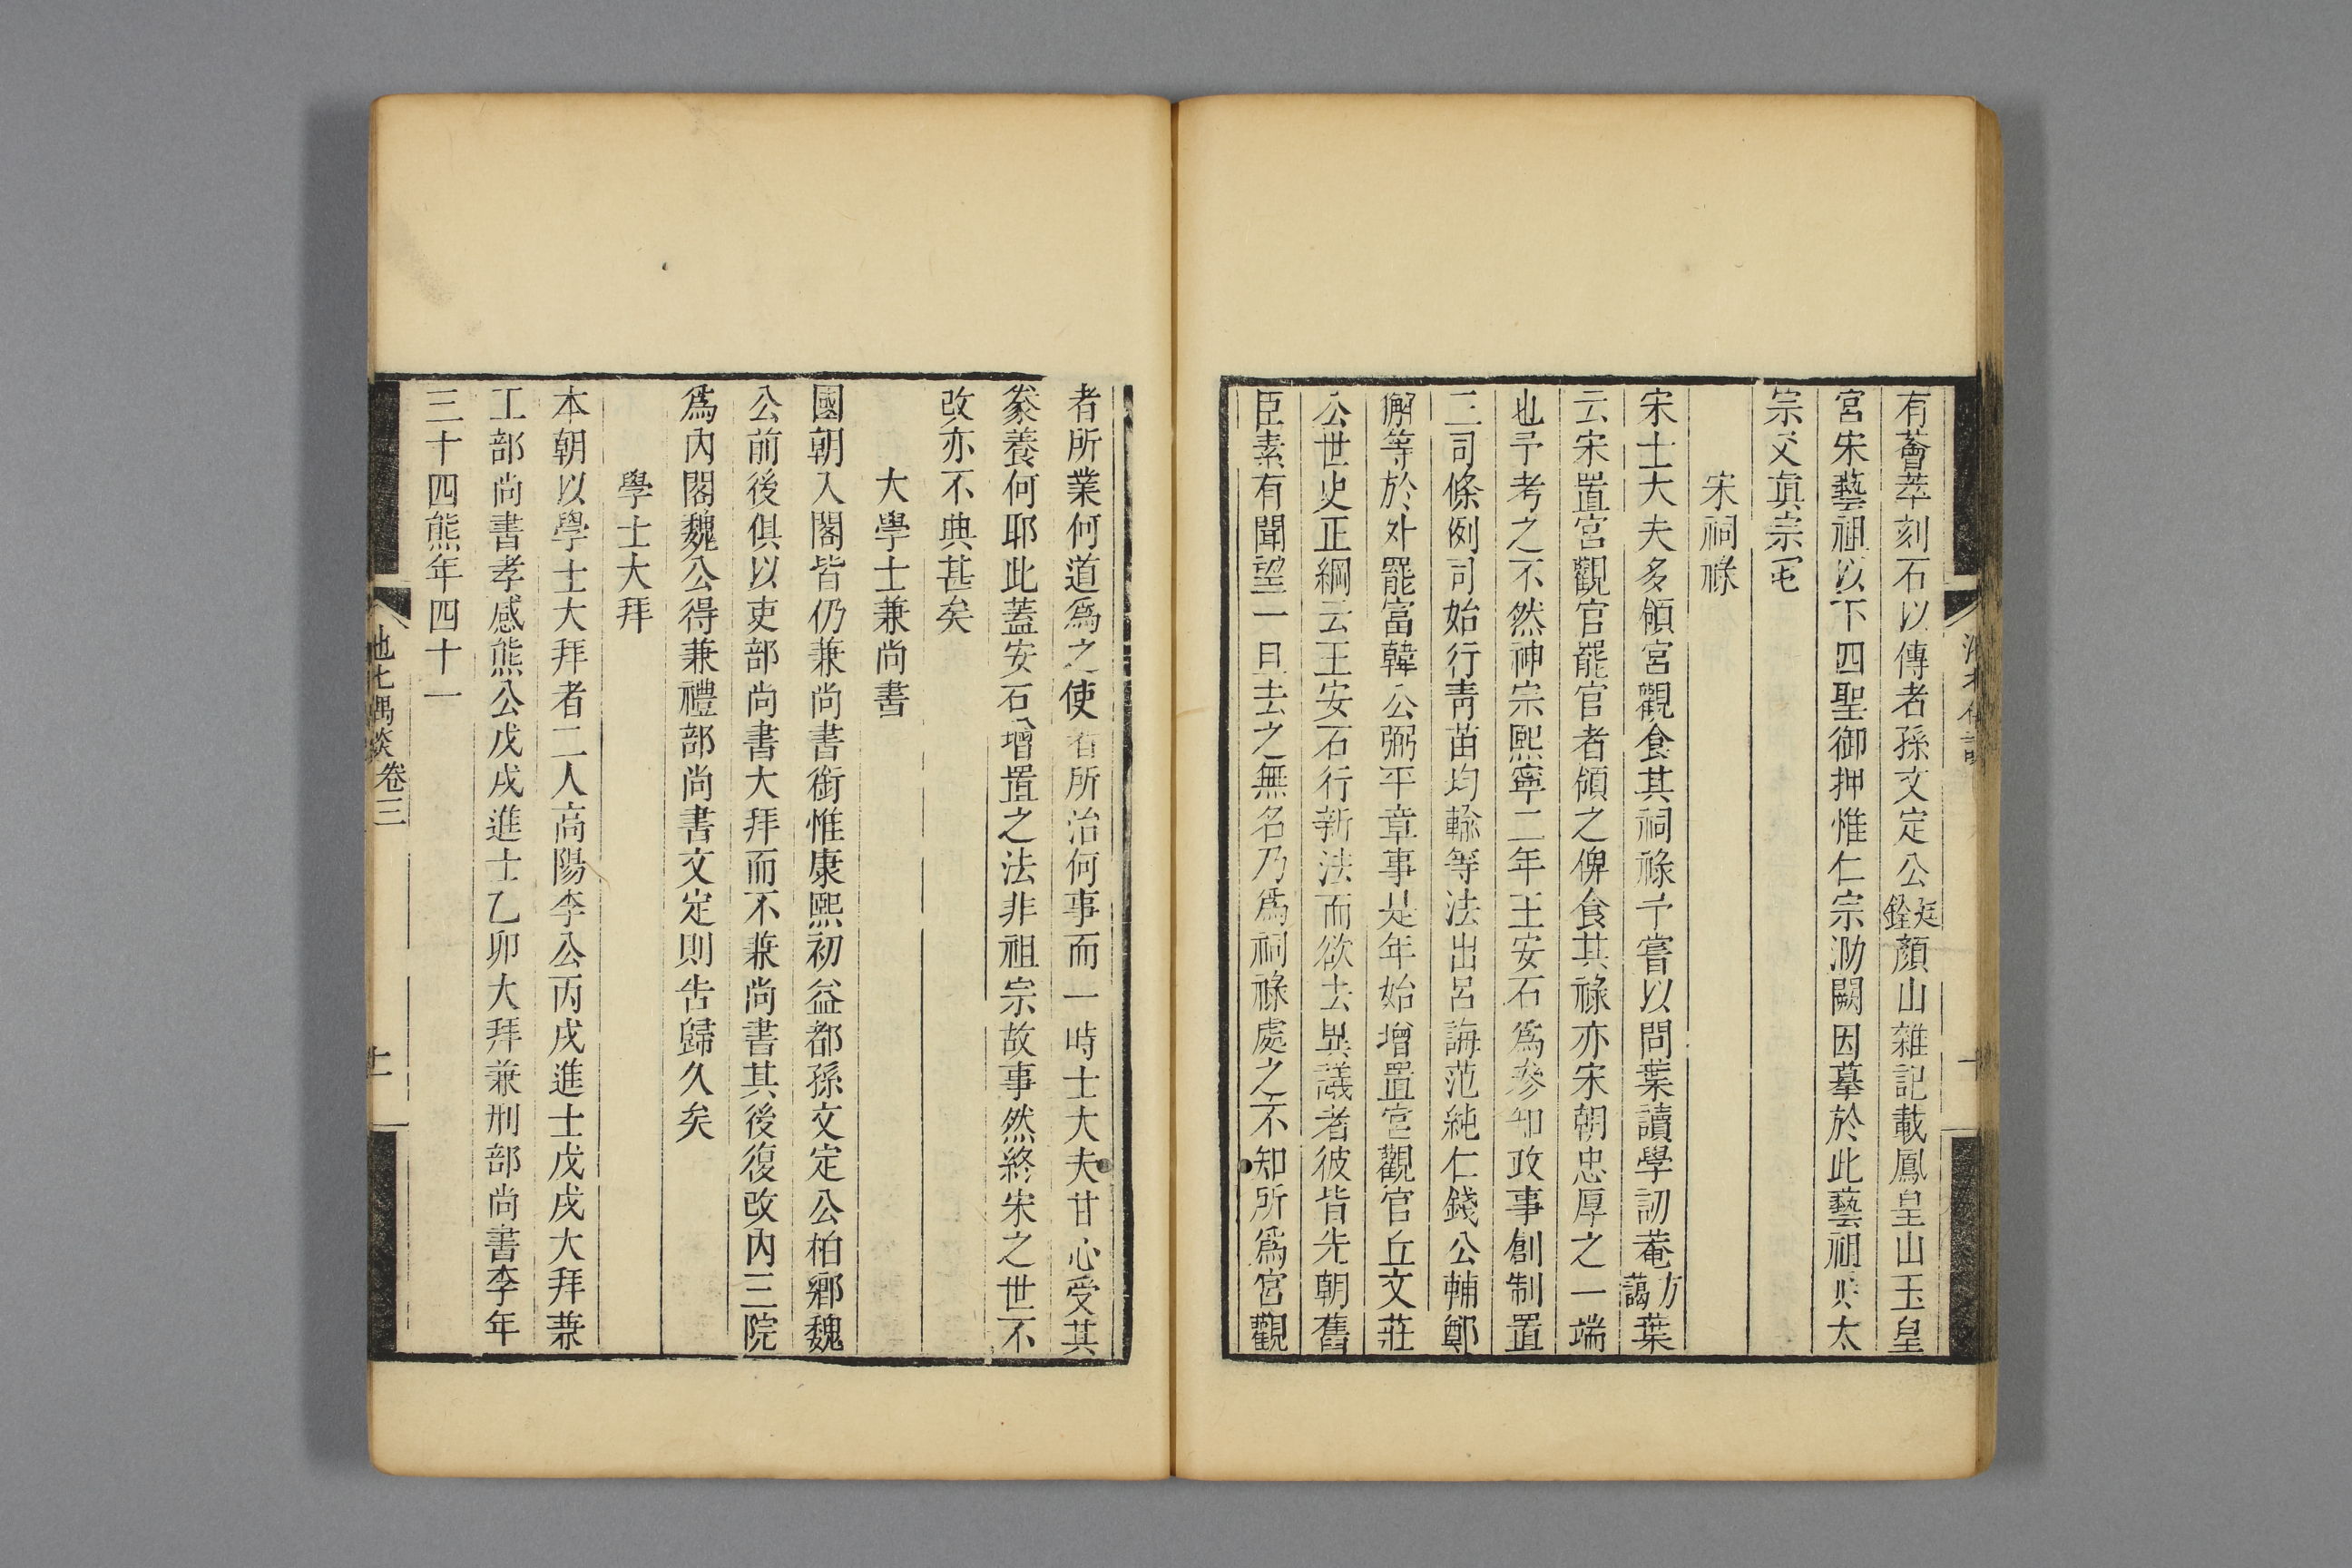 有薈萃刻石以傳者孫文定公廷銓顏山雜記載鳳皇山玉皇
宮宋藝祖以下四聖御押惟仁宗泐闕因摹於此藝祖太
宗㕛眞宗㐰
宋祠祿
宋士大夫多領宮觀食其祠祿予嘗以問葉讀學訒菴方藹葉
云宋置宮觀官罷官者領之俾食其祿亦宋朝忠厚之一端
也予考之不然神宗熙寧二年王安石爲參知政事創制置
三司條例司始行青苗均輸等法出呂誨范純仁錢公輔鄭
獬等於外罷富韓公弼平章事是年始增置宮觀官丘文莊
公世史正綱云王安石行新法而欲去異議者彼皆先朝舊
臣素有聞望一旦去之無名乃爲祠祿處之不知所爲宮觀
者所業何道爲之使者所治何事而一時士大夫甘心受其
豢養何耶此蓋安石增置之法非祖宗故事然終宋之世不
改亦不典甚矣
大學士兼尚書
國朝入閣皆仍兼尚書銜惟康熙初益都孫文定公柏鄉魏
公前後俱以吏部尚書大拜而不兼尚書其後復改內三院
爲內閣魏公得兼禮部尚書文定則告歸久矣
學士大拜
本朝以學士大拜者二人高陽李公丙戌進士戊戌大拜兼
工部尚書孝感熊公戊戌進士乙卯大拜兼刑部尚書李年
三十四熊年四十一
池北偶談 卷三
十一